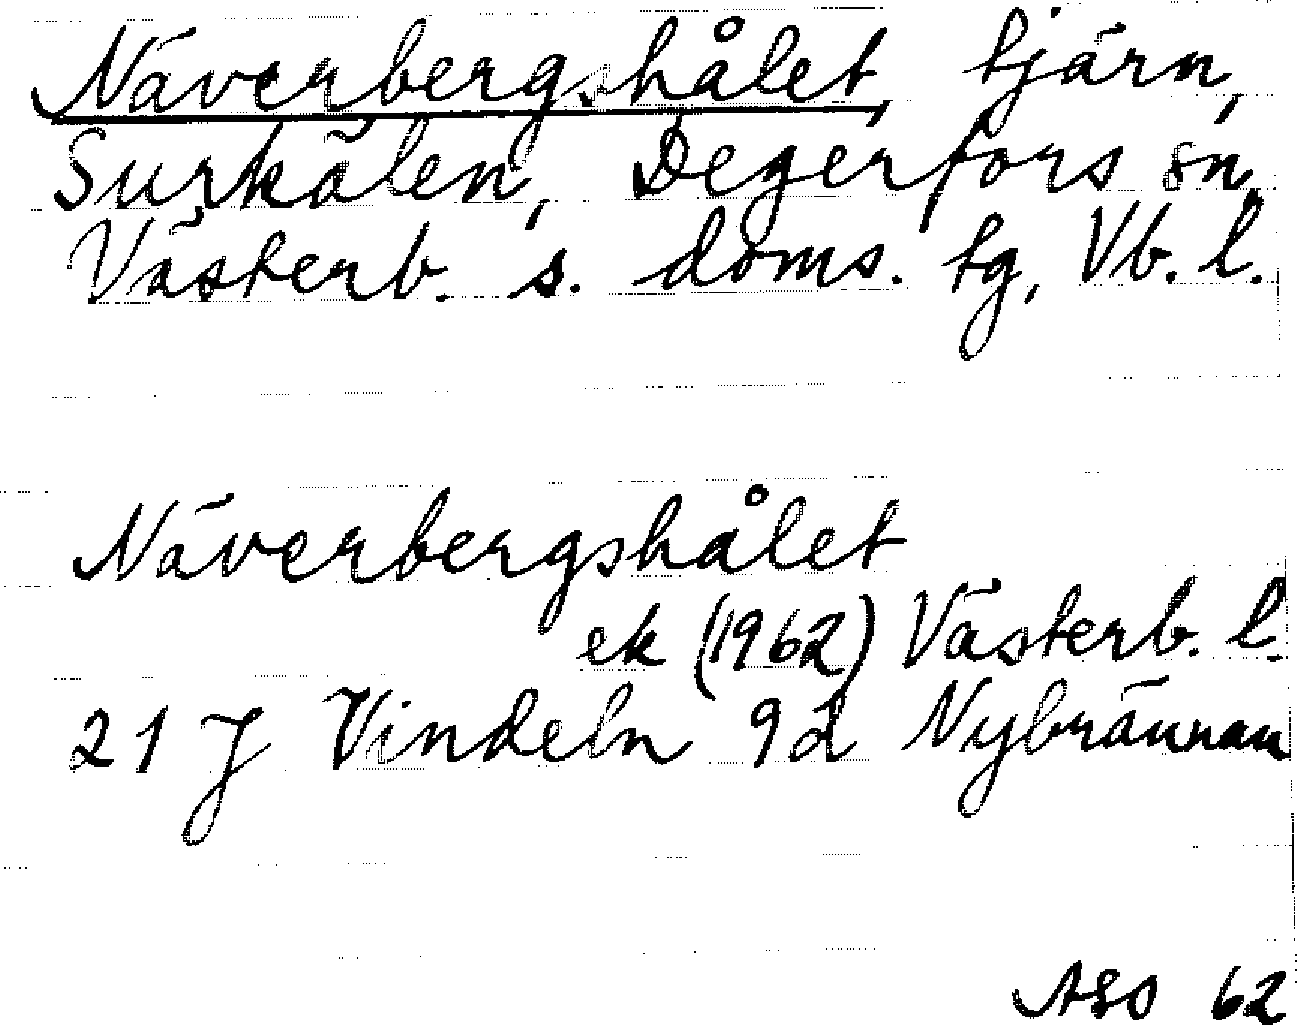 Näverbergshålet, tjärn,
Surkälen, Degerfors sn,
Västerb. s. doms. tg, Vb. l.
Näverbergshålet
ek (1962) Västerb. l.
21 J Vindeln 9d Nybrännan
ASO 62